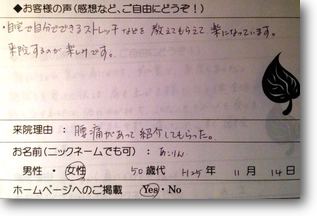 ◆お客様の声（感想など、ご自由にどうぞ！）
・自宅で自分でできるストレッチなどを教えてもらえて楽になっています。
来院するのが楽しみです。
来院理由：腰痛があって紹介してもらった。
お名前（ニックネームでも可）：あこりん
男性・女性 50歳代 H25年 11月 14日
ホームページへのご掲載 Yes・No